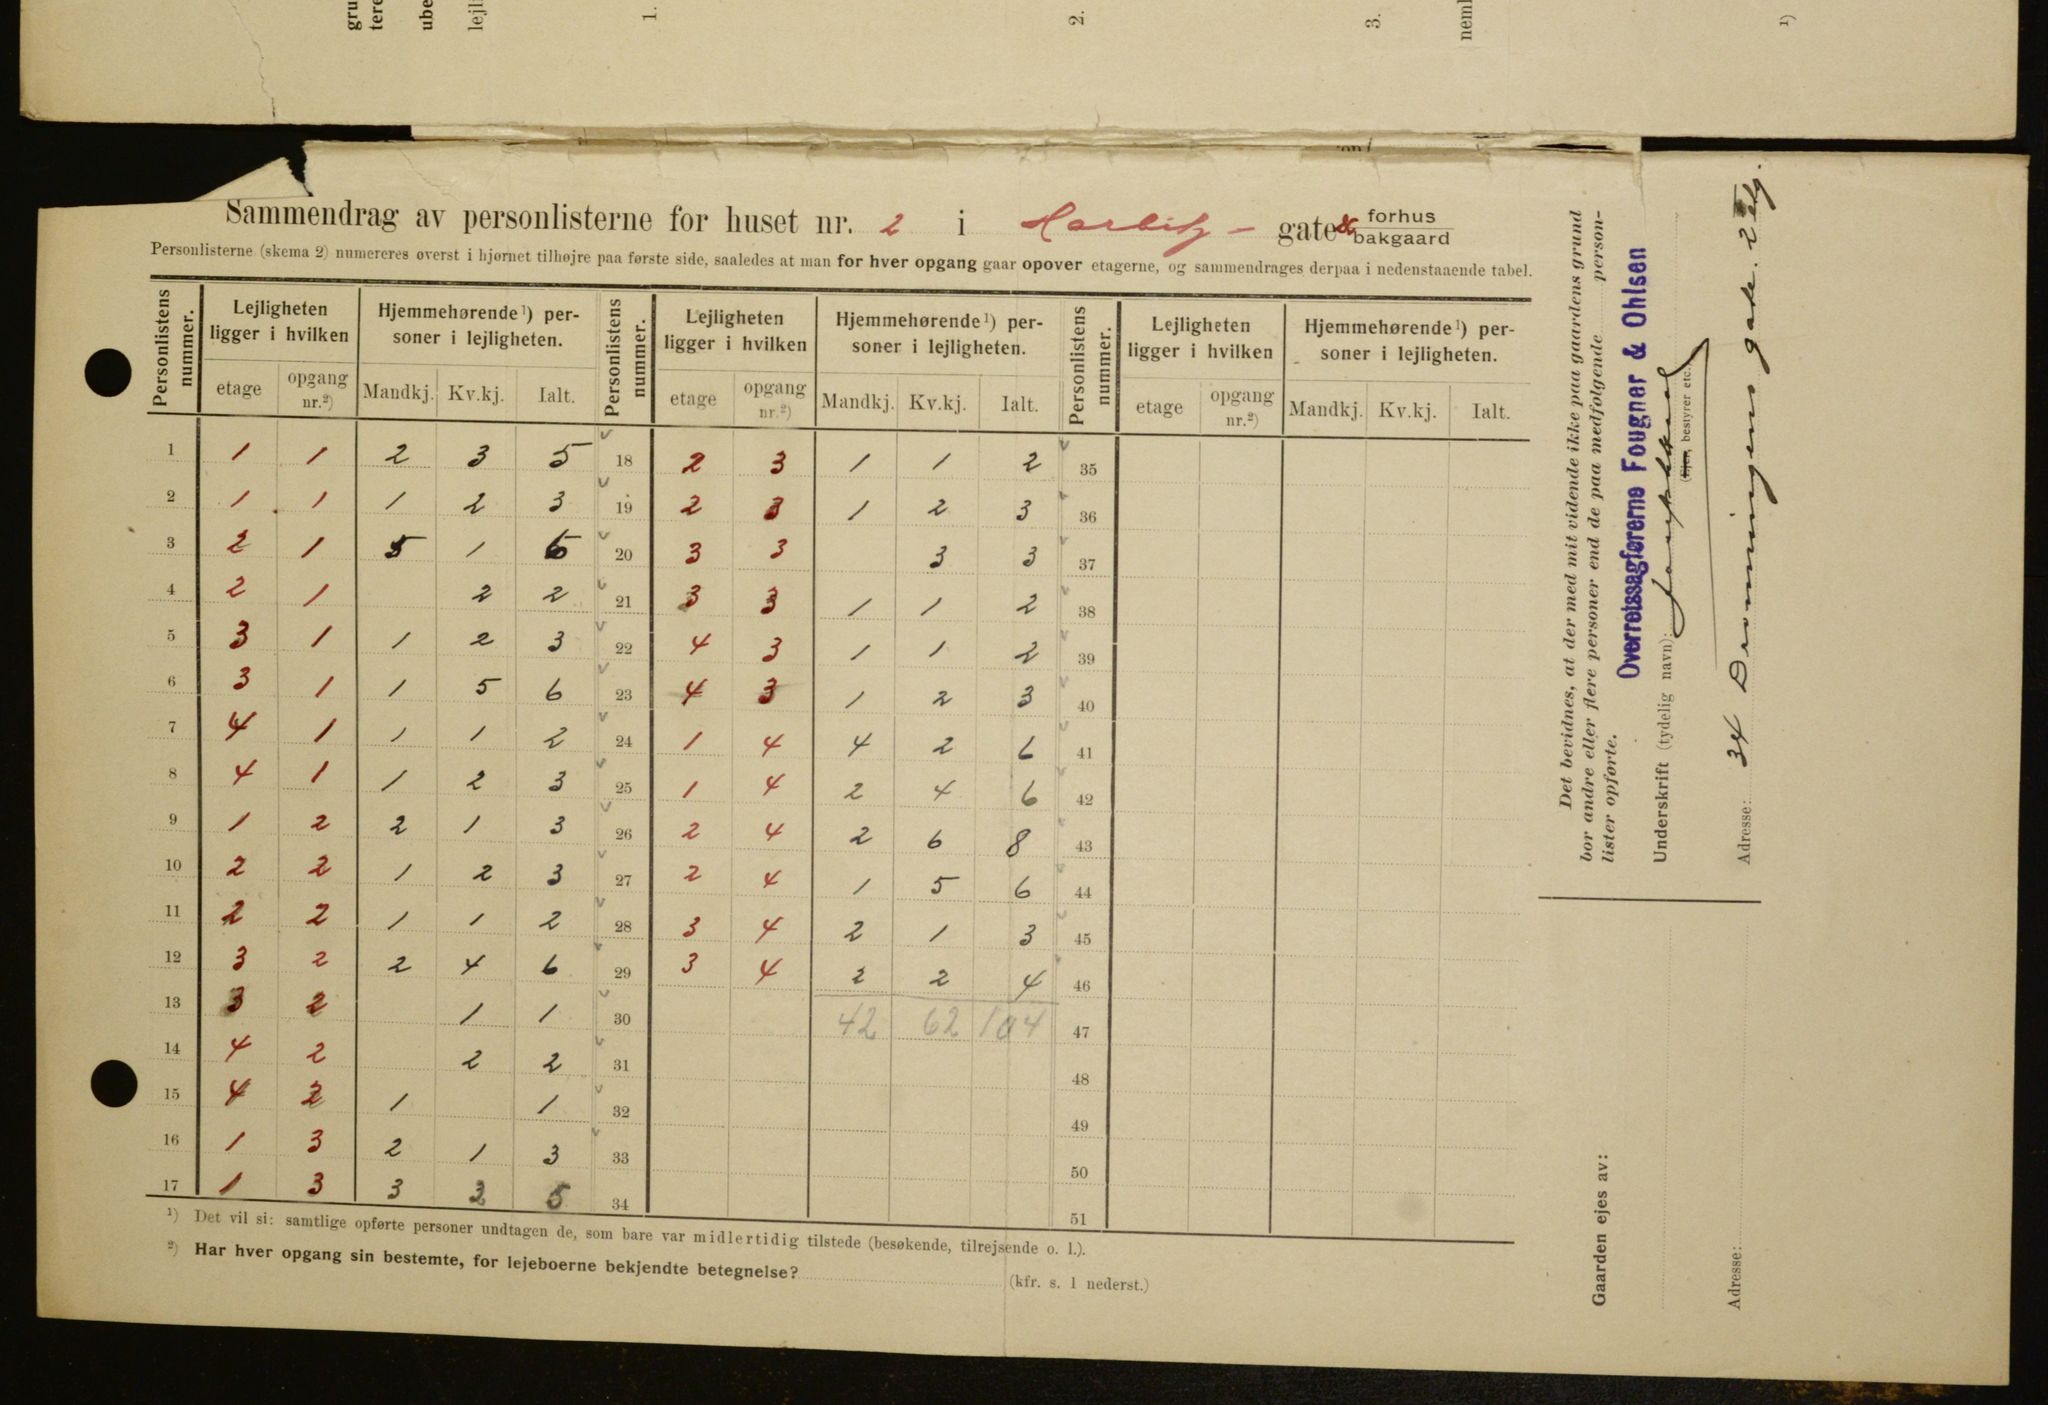 gru
tere
ube
lejl
1.
2.
3.
neml
1)
Sammendrag av personlisterne for huset nr. 2 i Harbitz- gate & forhus
bakgaard
Personlisterne (skema 2) numereres øverst i hjørnet tilhøjre paa første side, saaledes at man for hver opgang gaar opover etagerne, og sammendrages derpaa i nedenstaaende tabel.
Personlistens nummer. Lejligheten ligger i hvilken Hjemmehørende 1) personer i lejligheten. Personlistens nummer. Lejligheten ligger i hvilken Hjemmehørende 1) personer i lejligheten. Personlistens nummer. Lejligheten ligger i hvilken Hjemmehørende 1) personer i lejligheten.
etage opgang nr.2) Mandkj. Kv.kj. Ialt. etage opgang nr.2) Mandkj. Kv.kj. Ialt. etage opgang nr.2) Mandkj. Kv.kj. Ialt.
1 1 1 2 3 5 18 2 3 1 1 2 35
2 1 1 1 2 3 19 2 3 1 2 3 36
3 2 1 5 1 6 20 3 3 3 3 37
4 2 1 2 2 21 3 3 1 1 2 38
5 3 1 1 2 3 22 4 3 1 1 2 39
6 3 1 1 5 6 23 4 3 1 2 3 40
7 4 1 1 1 2 24 1 4 4 2 6 41
8 4 1 1 2 3 25 1 4 2 4 6 42
9 1 2 2 1 3 26 2 4 2 6 8 43
10 2 2 1 2 3 27 2 4 1 5 6 44
11 2 2 1 1 2 28 3 4 2 1 3 45
12 3 2 2 4 6 29 3 4 2 2 4 46
13 3 2 1 1 30 42 62 104 47
14 4 2 2 2 31 48
15 4 2 1 1 32 49
16 1 3 2 1 3 33 50
17 1 3 3 2 5 34 51
1) Det vil si: samtlige opførte personer undtagen de, som bare var midlertidig tilstede (besøkende, tilrejsende o. l.).
2) Har hver opgang sin bestemte, for lejeboerne bekjendte betegnelse? (kfr. s. 1 nederst.)
Det bevidnes, at der med mit vidende ikke paa gaardens grund
bor andre eller flere personer end de paa medfølgende person-
lister opførte.
Overretssagførerne Fougner & Ohlsen
Underskrift (tydelig navn):
(Ejer, bestyrer etc.)
Adresse: 34 Dronningens gade. 2 etg.
Gaarden ejes av:
Adresse: